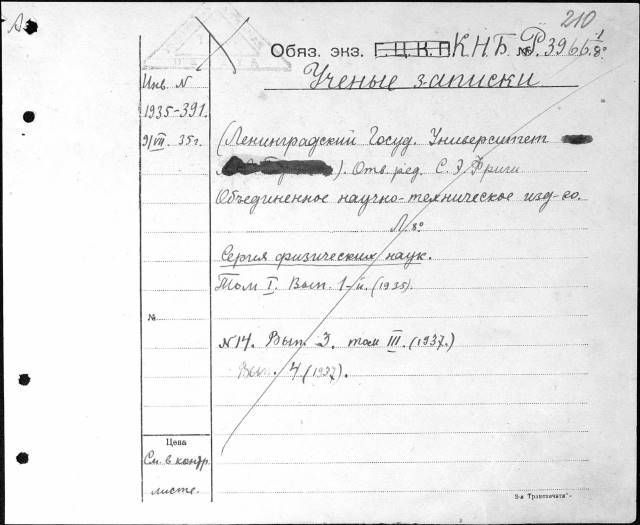 210
Обяз. экз. Г.Ц.К.П К.Н.Б. № Р. 3966 1/8°
Ученые записки
Инв. N
1935-391.
9/VII. 35 г.
(Ленинградский Госуд. Университет
). Отв. ред. С. Э. Фриш
Объединенное научно-техническое изд-во.
Л. 8°
Серия физических наук.
Том I. Вып. 1-й. (1935).
№
N 14. Вып. 3. том III. (1937.)
Вып. 4 (1937).
Цена
См. в контр.
листе.